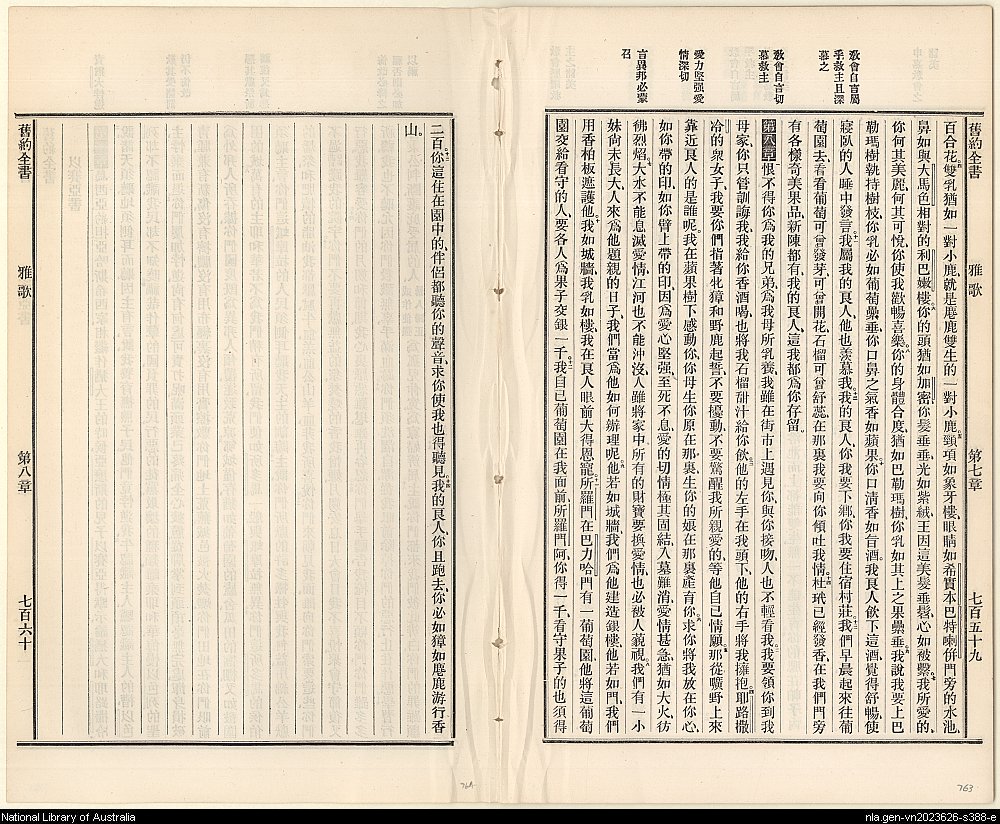 舊約全書 雅歌 第七章 七百五十九
教會自言屬
乎救主且深
慕之
教會自言切
慕救主
愛力堅强愛
情深切
言異邦必蒙
召
百合花雙乳猶如一對小鹿就是麀鹿雙生的一對小鹿頸項如象牙樓眼睛如希實本巴特喇併門旁的水池
鼻如與大馬色相對的利巴嫩樓你的頭猶如加密你髮垂垂光如紫絨王因這美髮垂髫心如被繫我所愛的
你何其美麗何其可悅你使我歡暢喜樂你的身體合度猶如巴勒瑪樹你乳如其上之果纍垂我說我要上巴
勒瑪樹執持樹枝你乳必如葡萄纍垂你口鼻之氣香如蘋果你口清香如旨酒我良人飲下這酒覺得舒暢使
寢臥的人睡中發言我屬我的良人他也羨慕我我的良人你我要下鄉你我要住宿村莊我們早晨起來往葡
萄園去看看葡萄可曾發芽可曾開花石榴可曾舒蕊在那裏我要向你傾吐我情杜玳已經發香在我們門旁
有各樣奇美果品新陳都有我的良人這我都爲你存留
第八章 恨不得你爲我的兄弟爲我母所乳養我雖在街市上遇見你與你接吻人也不輕看我我要領你到我
母家你只管訓誨我我給你香酒喝也將我石榴甜汁給你飲他的左手在我頭下他的右手將我擁抱耶路撒
冷的衆女子我要你們指著牝獐和野鹿起誓不要擾動不要驚醒我所親愛的等他自已情願那從曠野上來
靠近良人的是誰呢我在蘋果樹下感動你你母生你原在那裏生你的娘在那裏產育你求你將我放在你心
如你帶的印如你臂上帶的印因爲愛心堅强至死不息愛的切情極其固結入墓難消愛情甚急猶如大火彷
彿烈焰大水不能息滅愛情江河也不能沖沒人雖將家中所有的財寶要換愛情也必被人藐視我們有一小
妹尚未長大人來爲他題親的日子我們當爲他如何辦理呢他若如城牆我們爲他建造銀樓他若如門我們
用香柏板遮護他我如城牆我乳如樓我在良人眼前大得恩寵所羅門在巴力哈門有一葡萄園他將這葡萄
園交給看守的人要各人爲果子交銀一千我自已葡萄園在我面前所羅門阿你得一千看守果子的也須得
二百你這住在園中的伴侶都聽你的聲音求你使我也得聽見我的良人你且跑去你必如獐如麀鹿游行香
山
舊約全書 雅歌 第八章 七百六十
764
763
National Library of Australia
nla.gen-vn2023626-s388-e